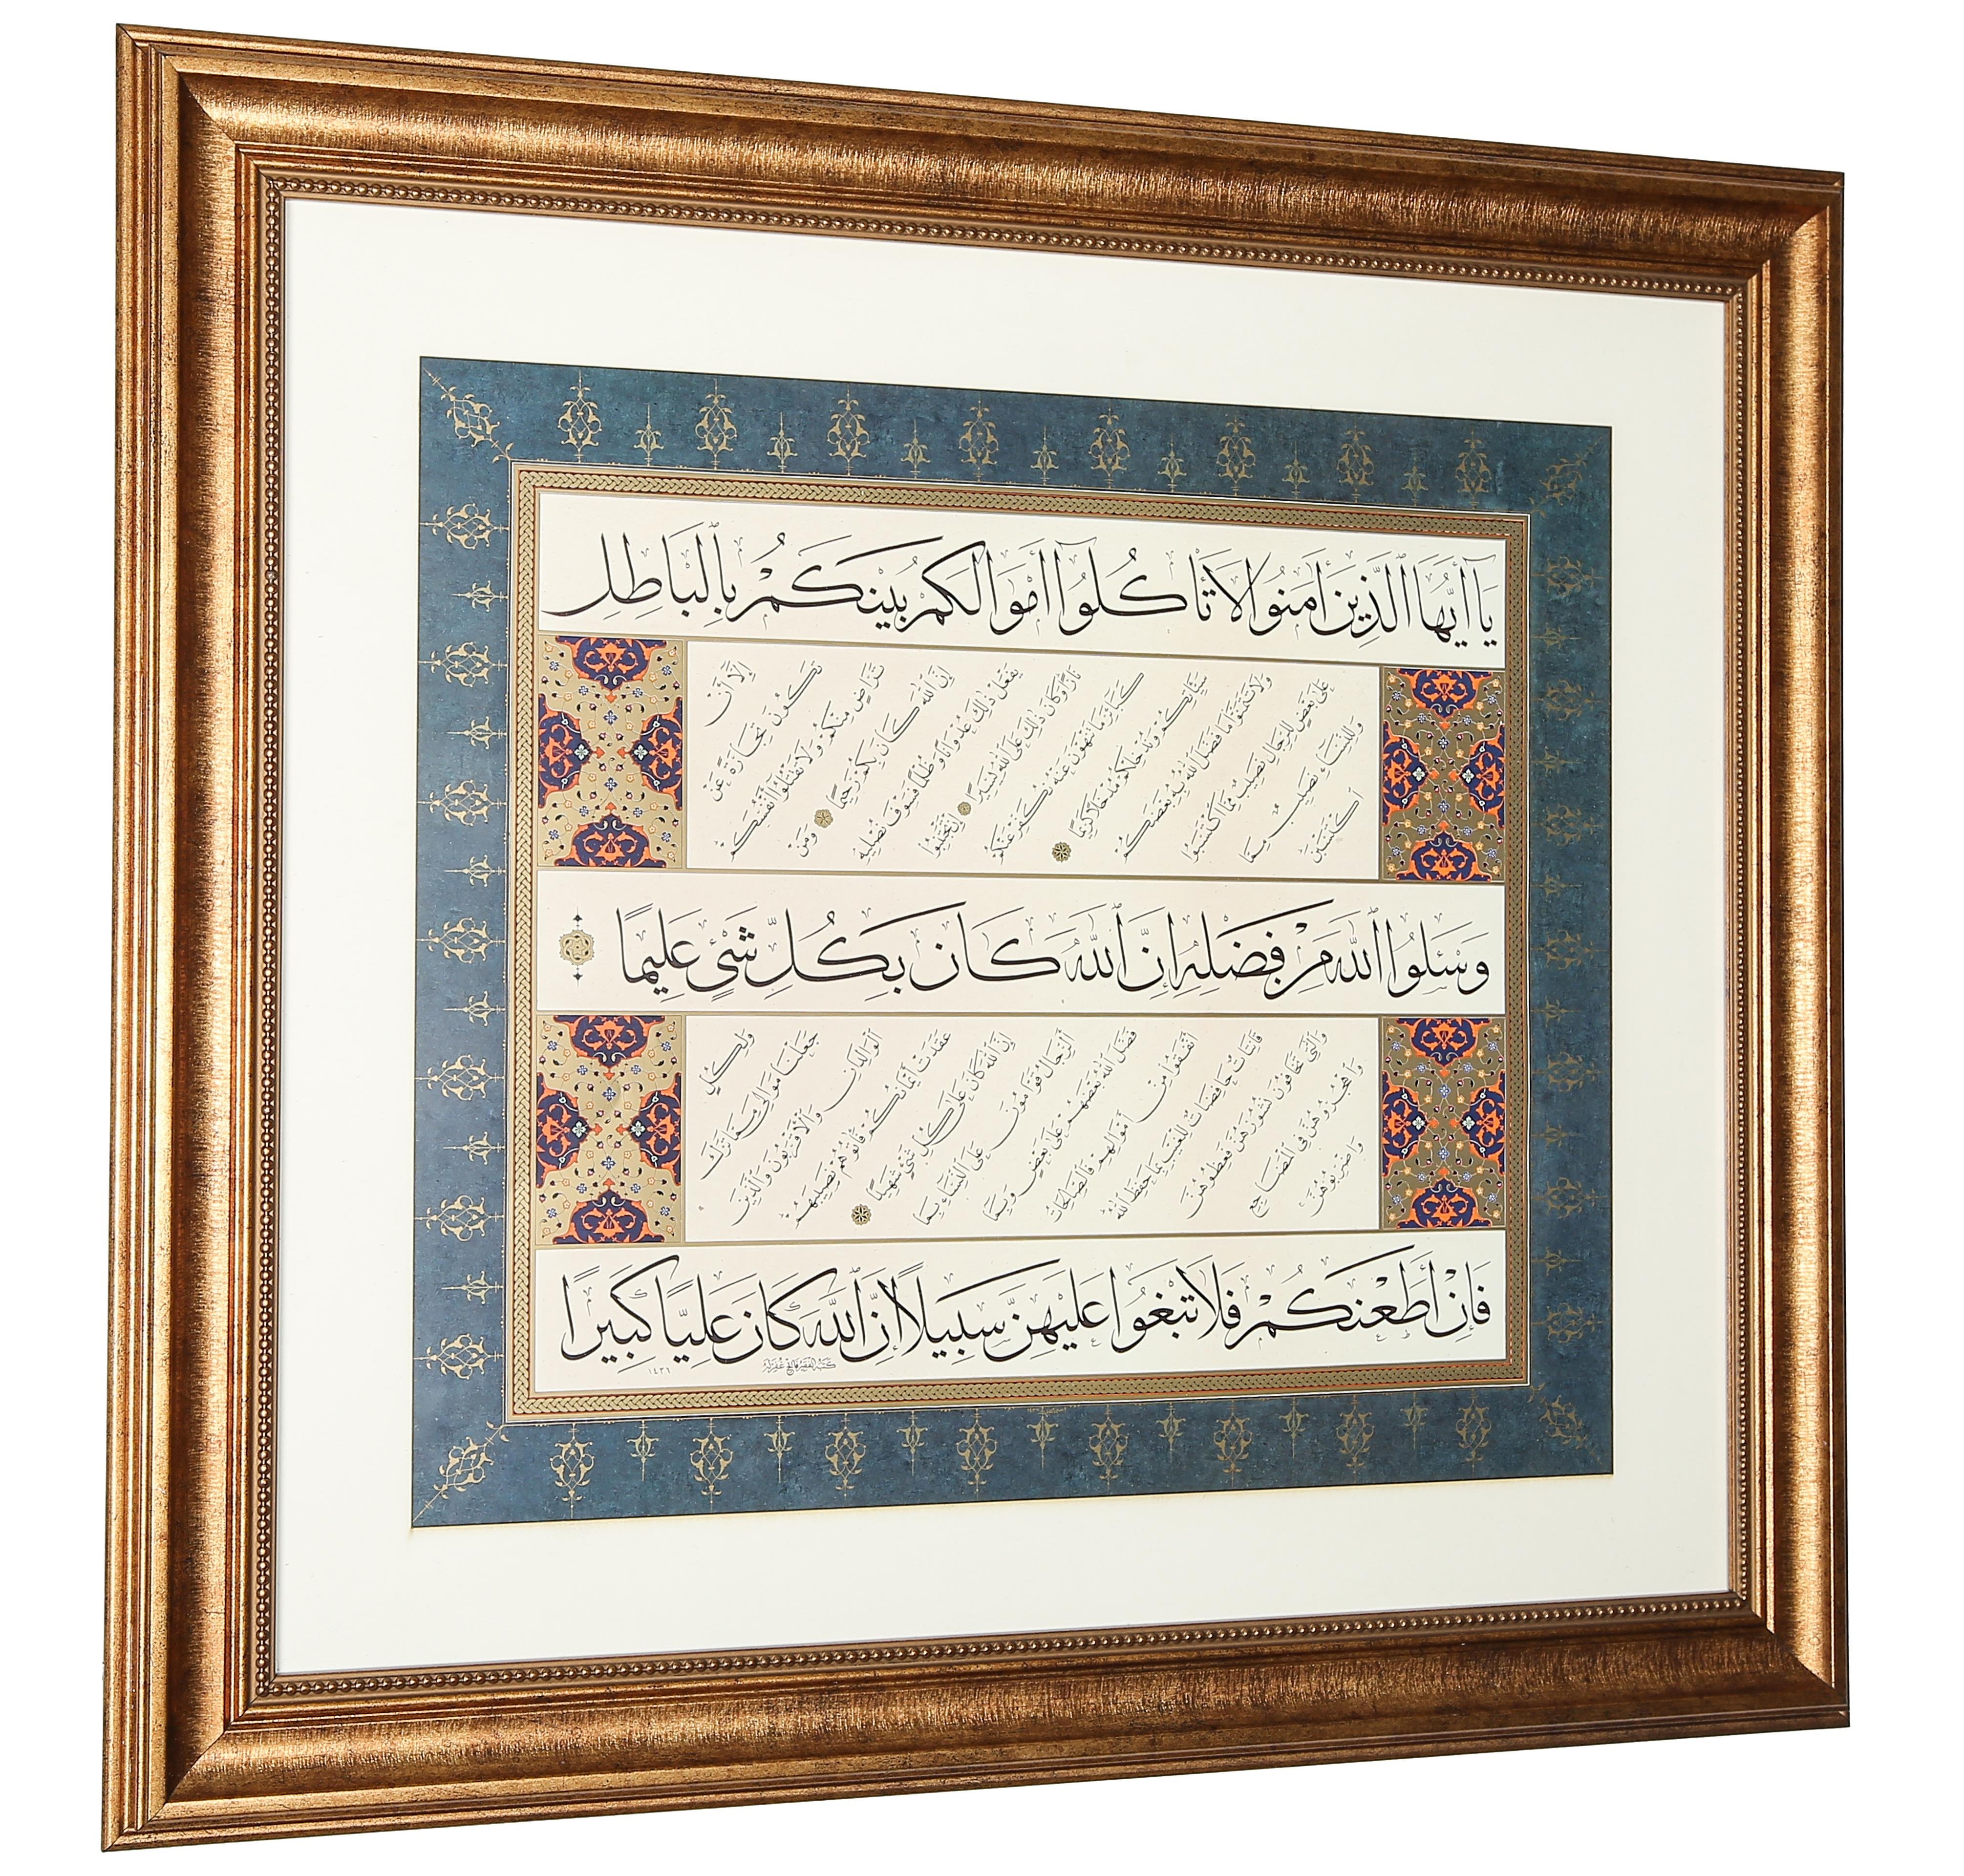 يَا أَيُّهَا الَّذِينَ اٰمَنُوا لَا تَأْكُلُوا أَمْوَالَكُمْ بَيْنَكُمْ بِالْبَاطِلِ
إِلَّا أَنْ
تَكُونَ تِجَارَةً عَنْ
تَرَاضٍ مِنْكُمْ وَلَا تَقْتُلُوا أَنْفُسَكُمْ
إِنَّ اللّٰهَ كَانَ بِكُمْ رَحِيمًا وَمَنْ
يَفْعَلْ ذٰلِكَ عُدْوَانًا وَظُلْمًا فَسَوْفَ نُصْلِيهِ
نَارًا وَكَانَ ذٰلِكَ عَلَى اللّٰهِ يَسِيرًا إِنْ تَجْتَنِبُوا
كَبَائِرَ مَا تُنْهَوْنَ عَنْهُ نُكَفِّرْ عَنْكُمْ
سَيِّئَاتِكُمْ وَنُدْخِلْكُمْ مُدْخَلًا كَرِيمًا
وَلَا تَتَمَنَّوْا مَا فَضَّلَ اللّٰهُ بِهِ بَعْضَكُمْ
عَلَى بَعْضٍ لِلرِّجَالِ نَصِيبٌ مِمَّا اكْتَسَبُوا
وَلِلنِّسَاءِ نَصِيبٌ مِمَّا
اكْتَسَبْنَ
وَسْـَٔلُوا اللّٰهَ مِنْ فَضْلِهِ إِنَّ اللّٰهَ كَانَ بِكُلِّ شَيْءٍ عَلِيمًا
وَلِكُلٍّ
جَعَلْنَا مَوَالِيَ مِمَّا تَرَكَ
الْوَالِدَانِ وَالْأَقْرَبُونَ وَالَّذِينَ
عَقَدَتْ أَيْمَانُكُمْ فَاٰتُوهُمْ نَصِيبَهُمْ
إِنَّ اللّٰهَ كَانَ عَلَى كُلِّ شَيْءٍ شَهِيدًا
اَلرِّجَالُ قَوَّامُونَ عَلَى النِّسَاءِ بِمَا
فَضَّلَ اللّٰهُ بَعْضَهُمْ عَلَى بَعْضٍ وَبِمَا
أَنْفَقُوا مِنْ أَمْوَالِهِمْ فَالصَّالِحَاتُ
قَانِتَاتٌ حَافِظَاتٌ لِلْغَيْبِ بِمَا حَفِظَ اللّٰهُ
وَالّٰتِي تَخَافُونَ نُشُوزَهُنَّ فَعِظُوهُنَّ
وَاهْجُرُوهُنَّ فِي الْمَضَاجِعِ
وَاضْرِبُوهُنَّ
فَإِنْ أَطَعْنَكُمْ فَلَا تَبْغُوا عَلَيْهِنَّ سَبِيلًا إِنَّ اللّٰهَ كَانَ عَلِيًّا كَبِيرًا
١٤٣١